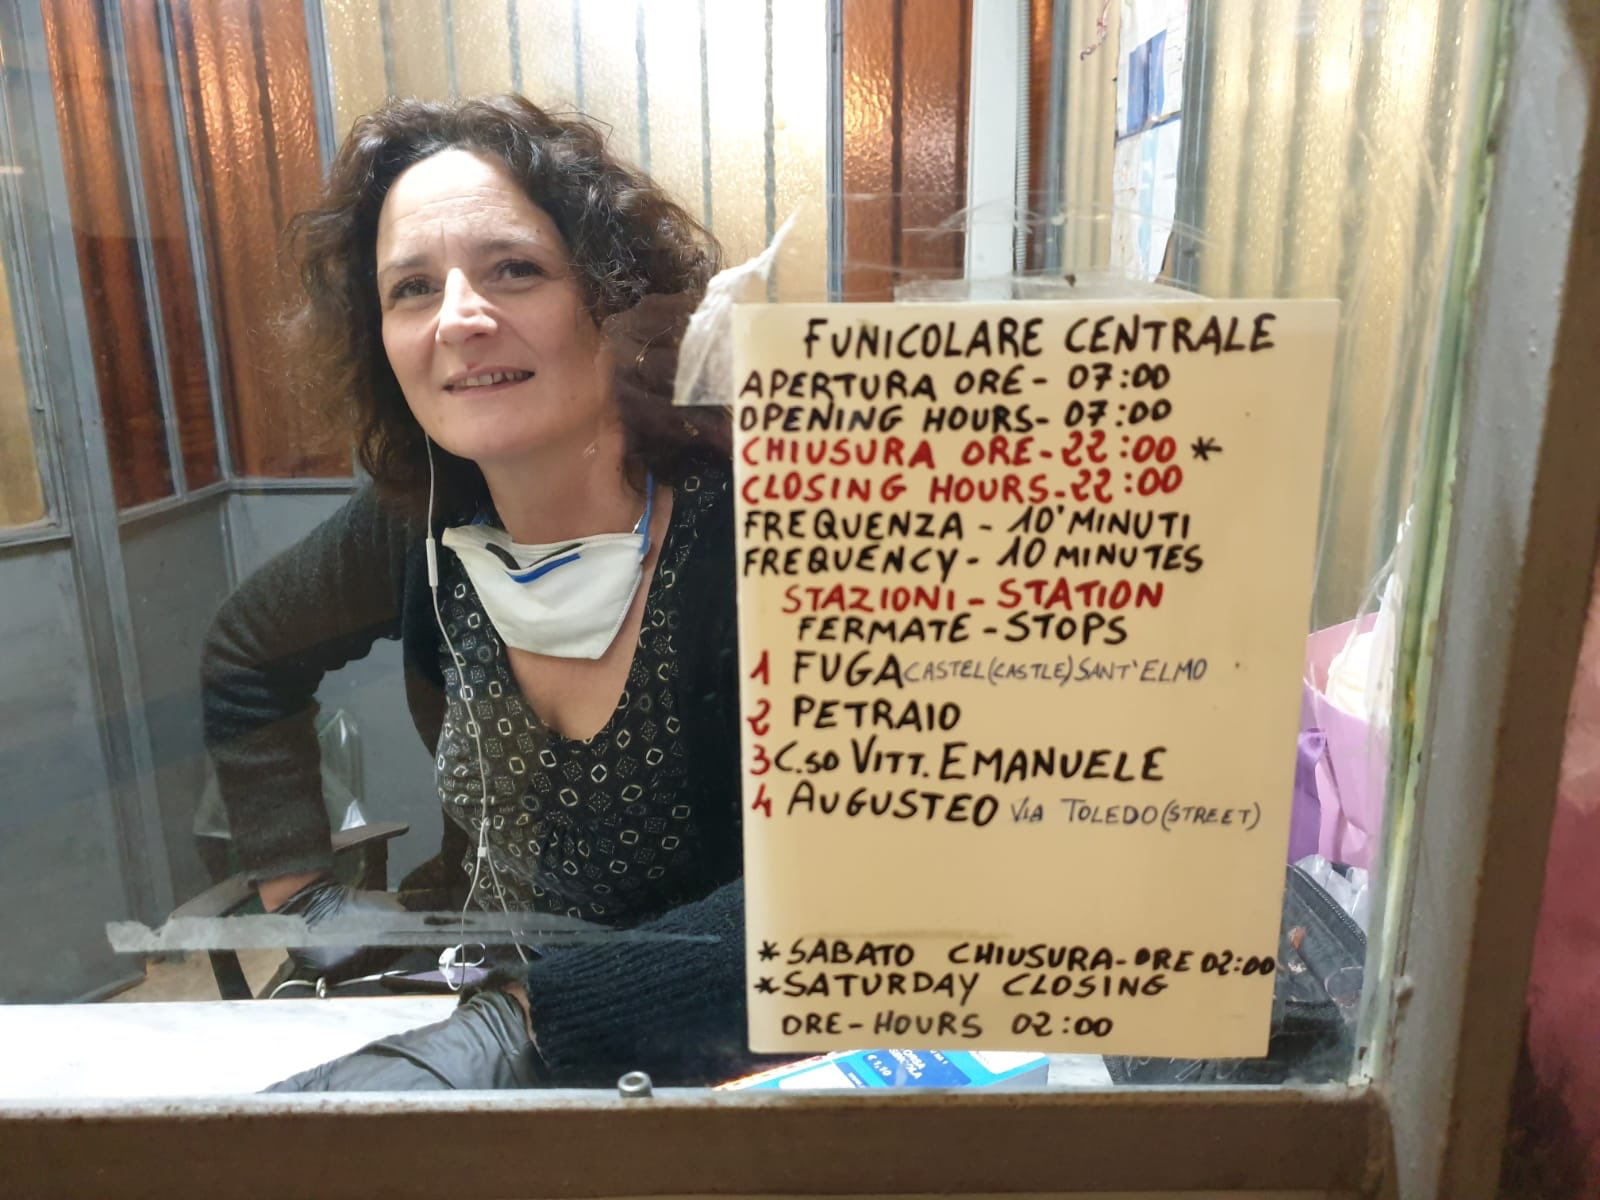 FUNICOLARE CENTRALE
APERTURA ORE- 07:00
OPENING HOURS- 07:00
CHIUSURA ORE-22:00 *
CLOSING HOURS-22:00
FREQUENZA - 10' MINUTI
FREQUENCY - 10 MINUTES
STAZIONI - STATION
FERMATE - STOPS
1 FUGA CASTEL(CASTLE) SANT'ELMO
2 PETRAIO
3 C.SO VITT. EMANUELE
4 AUGUSTEO VIA TOLEDO(STREET)
* SABATO CHIUSURA-ORE 02:00
* SATURDAY CLOSING
ORE-HOURS 02:00
CORSA
€ 1,10